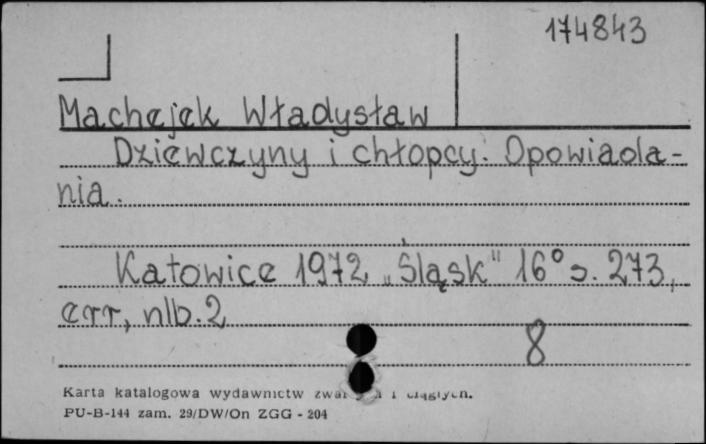 174843
Machejek Władysław
Dziewczyny i chłopcy. Opowiada-
nia.
Katowice 1972 „Śląsk" 16° s. 273,
err, nlb. 2
8
Karta katalogowa wydawnictw i ciągłych.
PU-B-144 zam. 29/DW/On ZGG - 204